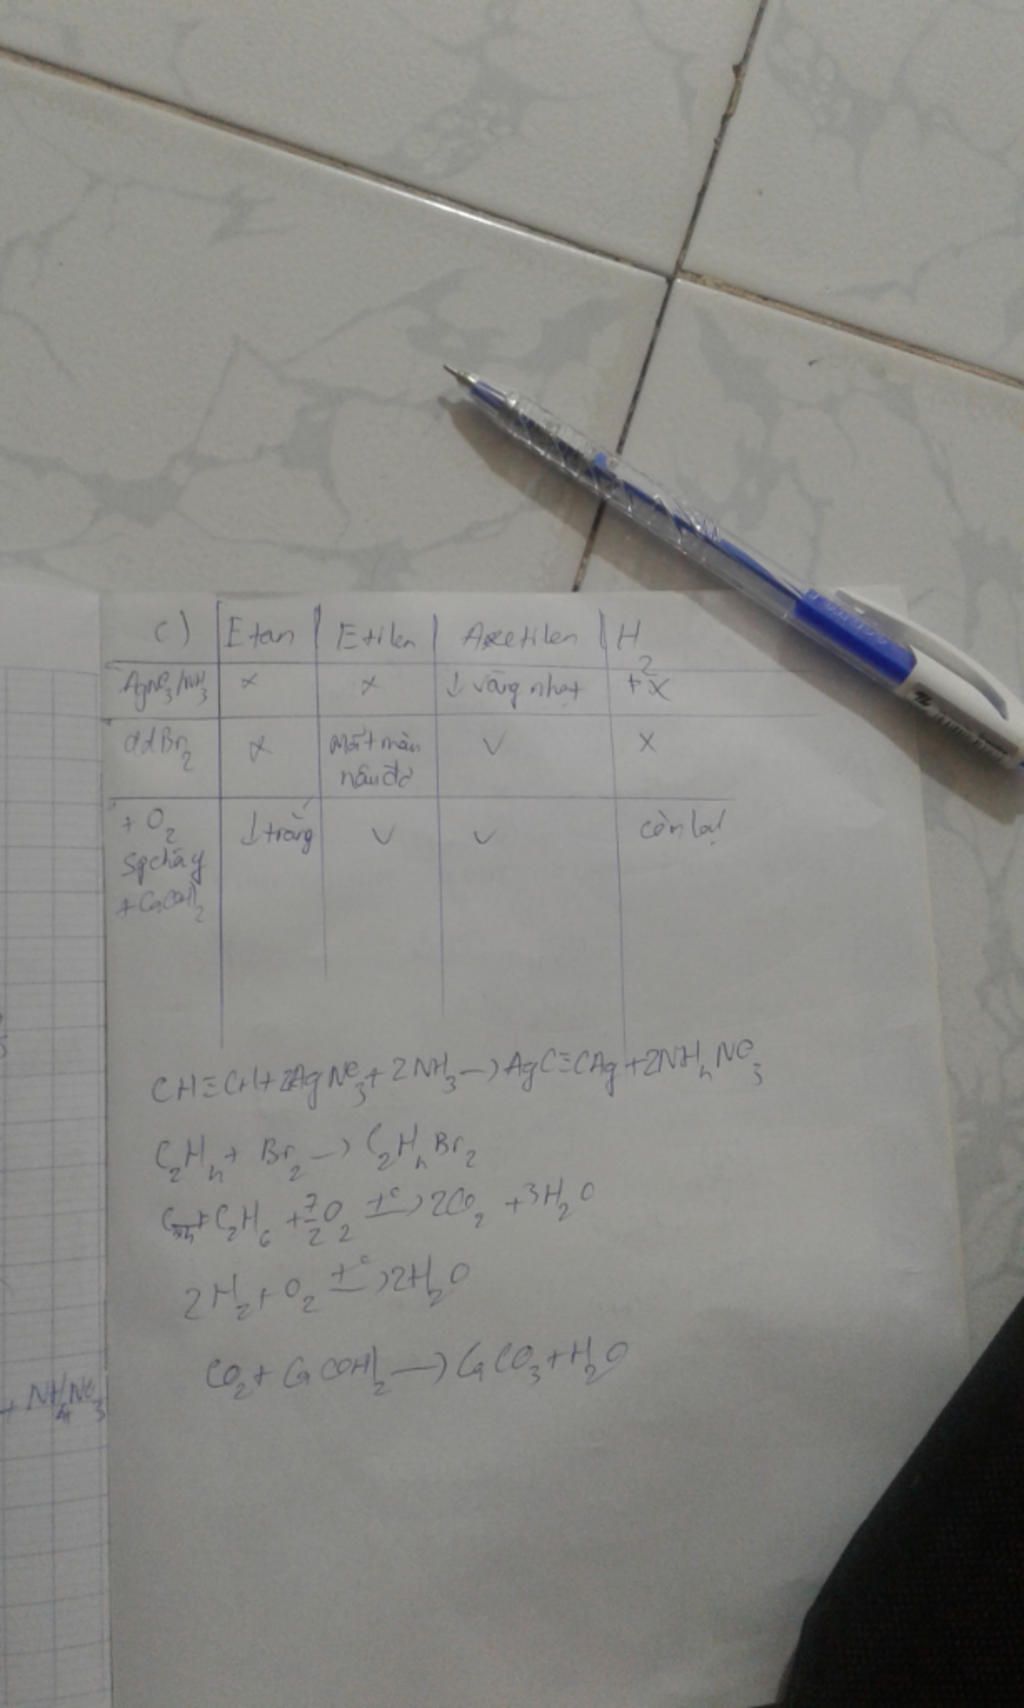 c) Etan Etilen Axetilen H2
AgNO3/NH3 x x ↓ vàng nhạt + x
ddBr2 x Mất màu nâu đỏ ✓ x
+ O2 Sp cháy + Ca(OH)2 ↓ trắng ✓ ✓ còn lại
CH≡CH + 2AgNO3 + 2NH3 → AgC≡CAg + 2NH4NO3
C2H4 + Br2 → C2H4Br2
C2H6 + 7/2 O2 t°→ 2CO2 + 3H2O
2H2 + O2 t°→ 2H2O
CO2 + Ca(OH)2 → CaCO3 + H2O
+ NH4NO3